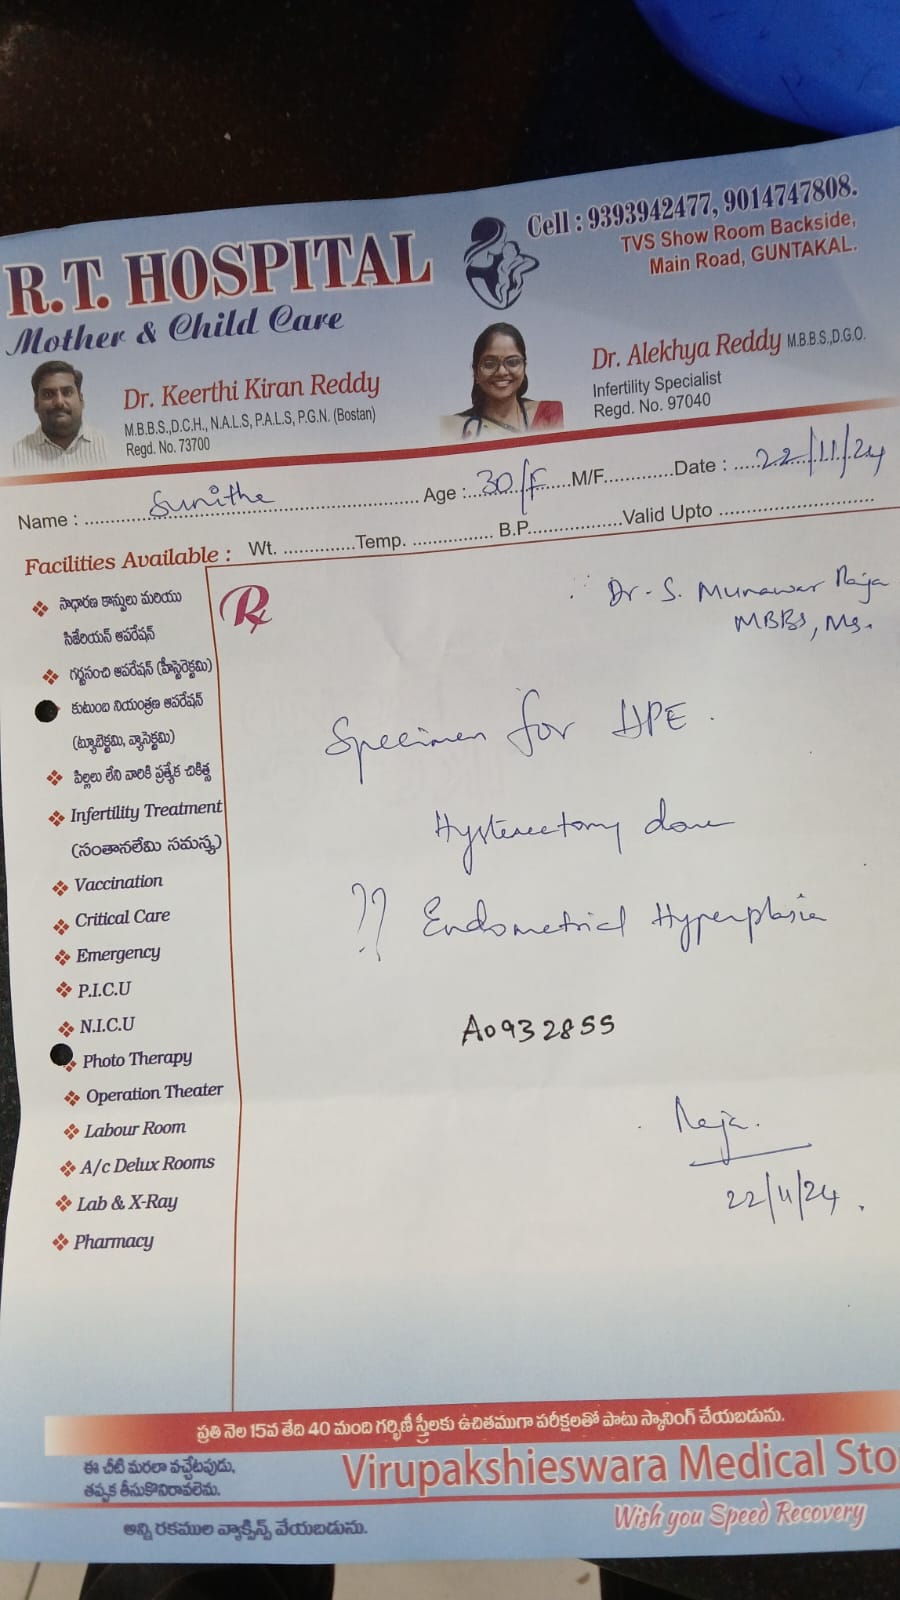 Cell : 9393942477, 9014747808.
TVS Show Room Backside,
Main Road, GUNTAKAL.
R.T. HOSPITAL
Mother & Child Care
Dr. Keerthi Kiran Reddy
M.B.B.S.,D.C.H., N.A.L.S, P.A.L.S, P.G.N. (Bostan)
Regd. No. 73700
Dr. Alekhya Reddy M.B.B.S.,D.G.O.
Infertility Specialist
Regd. No. 97040
Name : Sunitha Age : 30/F M/F Date : 22/11/24
Wt. Temp. B.P. Valid Upto
Facilities Available :
సాధారణ కాన్పులు మరియు
సిజేరియన్ ఆపరేషన్
గర్భసంచి ఆపరేషన్ (హిస్టెరెక్టమి)
కుటుంబ నియంత్రణ ఆపరేషన్
(ట్యూబెక్టమి, వ్యాసెక్టమి)
పిల్లలు లేని వారికి ప్రత్యేక చికిత్స
Infertility Treatment
(సంతానలేమి సమస్య)
Vaccination
Critical Care
Emergency
P.I.C.U
N.I.C.U
Photo Therapy
Operation Theater
Labour Room
A/c Delux Rooms
Lab & X-Ray
Pharmacy
Rx
Dr. S. Munawar Raja
MBBS, MS.
Specimen for HPE.
Hysterectomy done
?? Endometrial Hyperplasia
A0932855
Raja.
22/11/24.
ప్రతి నెల 15వ తేది 40 మంది గర్భిణీ స్త్రీలకు ఉచితముగా పరీక్షలతో పాటు స్కానింగ్ చేయబడును.
ఈ చీటి మరలా వచ్చేటపుడు,
తప్పక తీసుకొనిరావలెను.
Virupakshieswara Medical Sto
అన్ని రకముల వ్యాక్సిన్స్ వేయబడును.
Wish you Speed Recovery